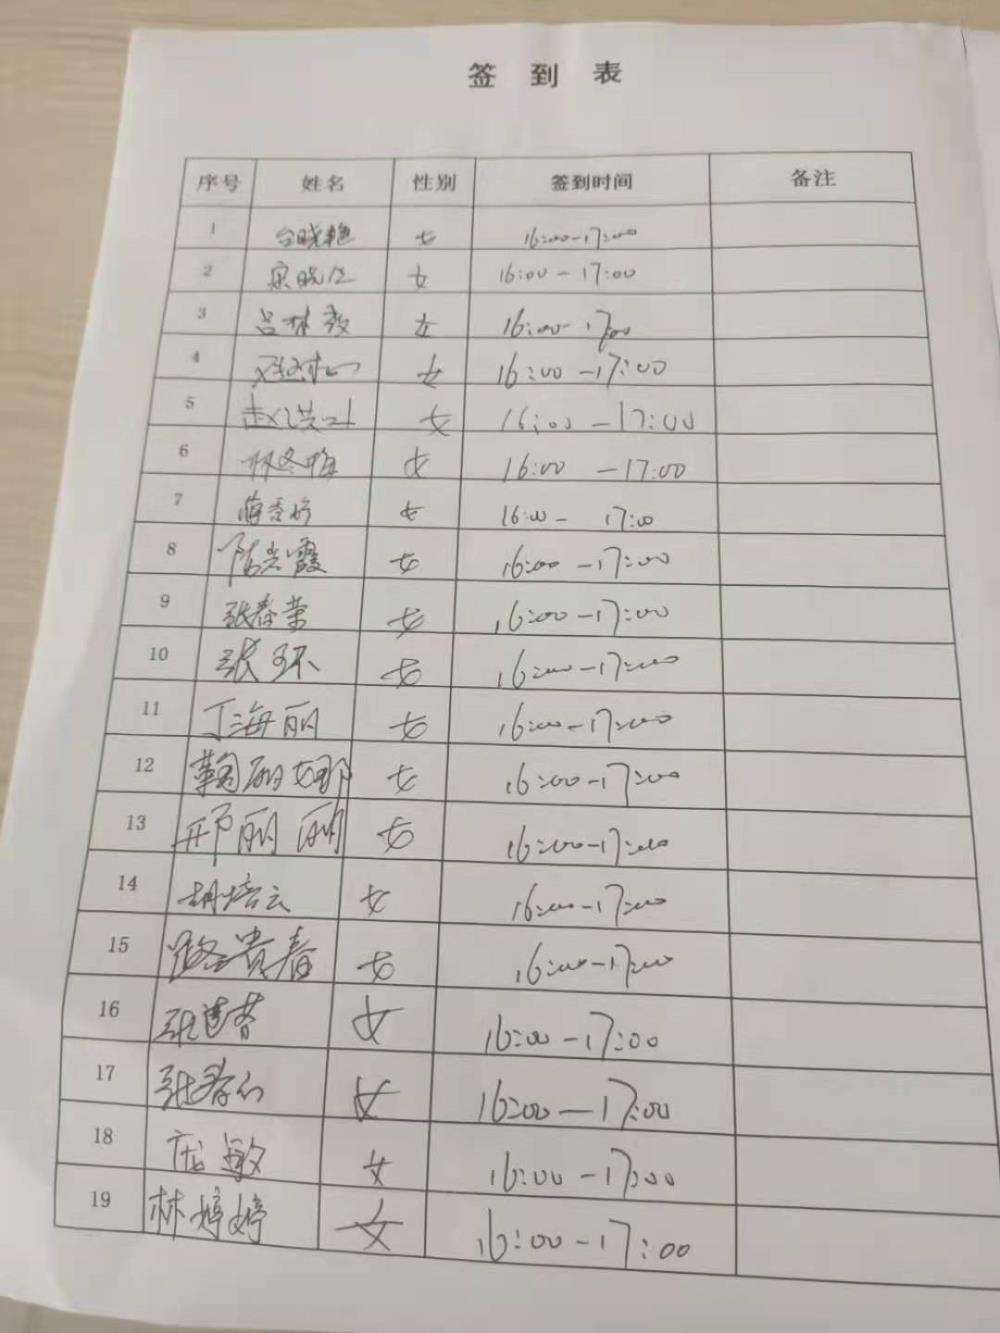 签到表
序号 姓名 性别 签到时间 备注
1 女 16:00-17:00
2 女 16:00-17:00
3 女 16:00-17:00
4 女 16:00-17:00
5 女 16:00-17:00
6 林冬梅 女 16:00-17:00
7 女 16:00-17:00
8 陈光霞 女 16:00-17:00
9 张春荣 女 16:00-17:00
10 张环 女 16:00-17:00
11 丁海丽 女 16:00-17:00
12 女 16:00-17:00
13 邢丽丽 女 16:00-17:00
14 胡培云 女 16:00-17:00
15 路贵春 女 16:00-17:00
16 女 16:00-17:00
17 女 16:00-17:00
18 女 16:00-17:00
19 林婷婷 女 16:00-17:00